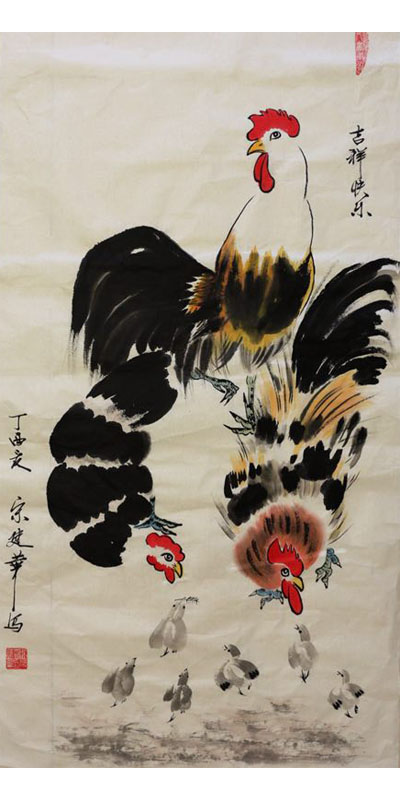 吉祥快乐
丁酉交
宋建华写